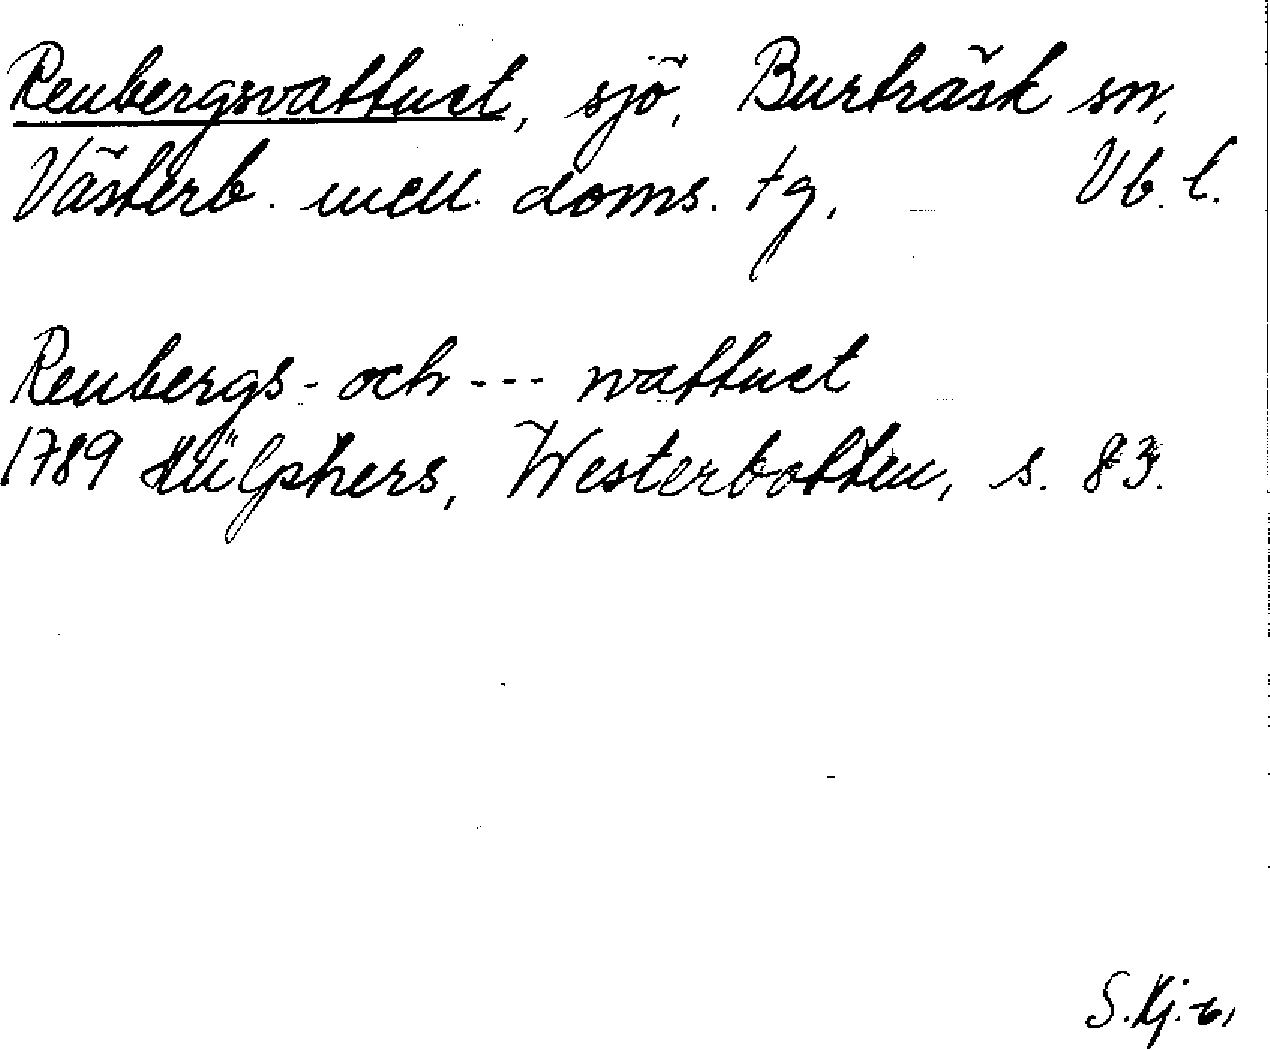 Renbergsvattnet, sjö, Burträsk sn,
Västerb. mell. doms. tg. Vb. l.
Renbergs- och --- wattnet
1789 Hülphers, Westerbotten, s. 83.
S. Kj.